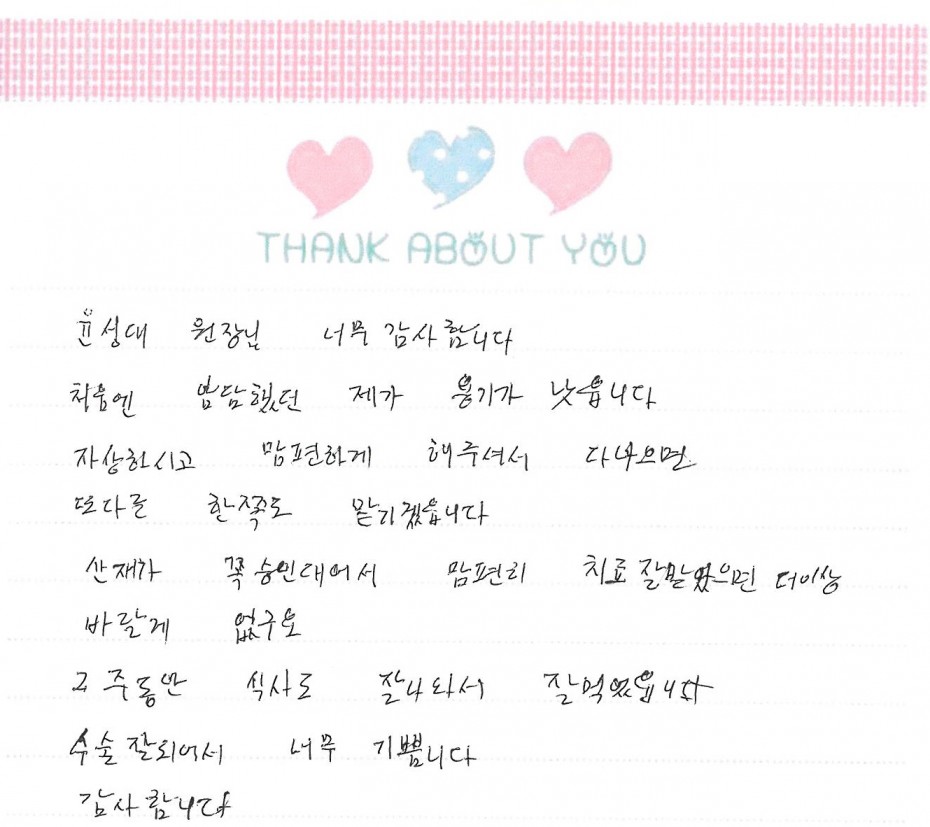 THANK ABOUT YOU
윤성대 원장님 너무 감사합니다
처음엔 암담했던 제가 용기가 낫읍니다
자상하시고 맘편하게 해주셔서 다나으면
또다른 한쪽도 맡기겠읍니다
산재가 꼭 승인대어서 맘편히 치료 잘맡았으면 더이상
바랄게 없구요
2주동안 식사도 잘나와서 잘먹었읍니다
수술 잘되어서 너무 기쁨니다
감사합니다